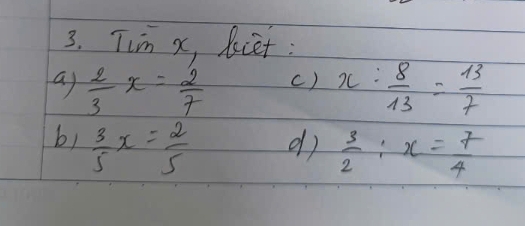 3. Tìm x, biết :
a) 2/3 x = 2/7 c) x : 8/13 = 13/7
b) 3/5 x = 2/5 d) 3/2 : x = 7/4